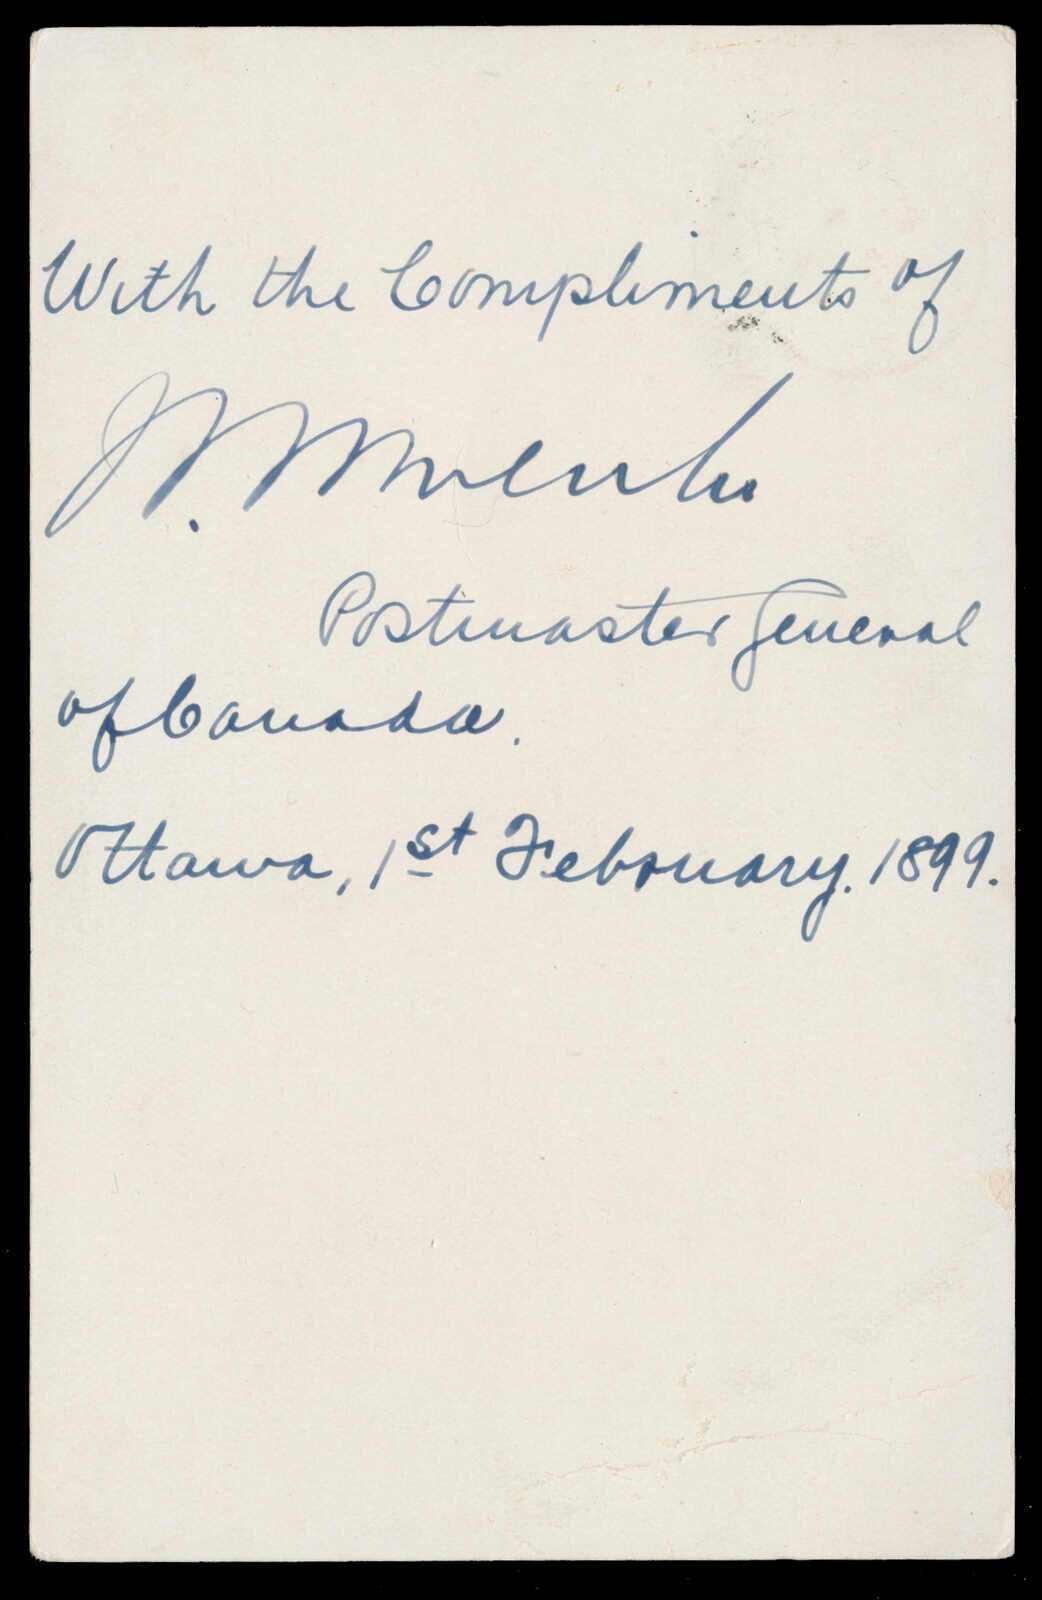 With the Compliments of
W. Mulock
Postmaster General
of Canada.
Ottawa, 1st February. 1899.